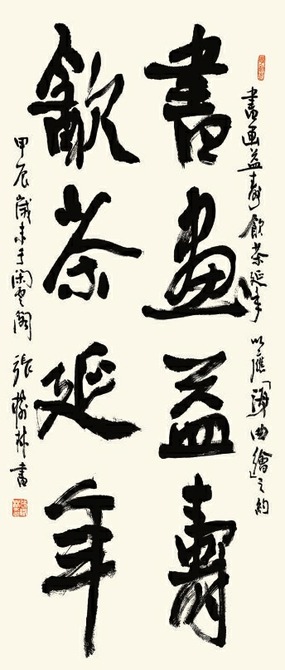 書畫益壽飲茶延年以應「海曲繪」之約
書畫益壽
飲茶延年
甲辰歲末于閑雲閣 張榆林書